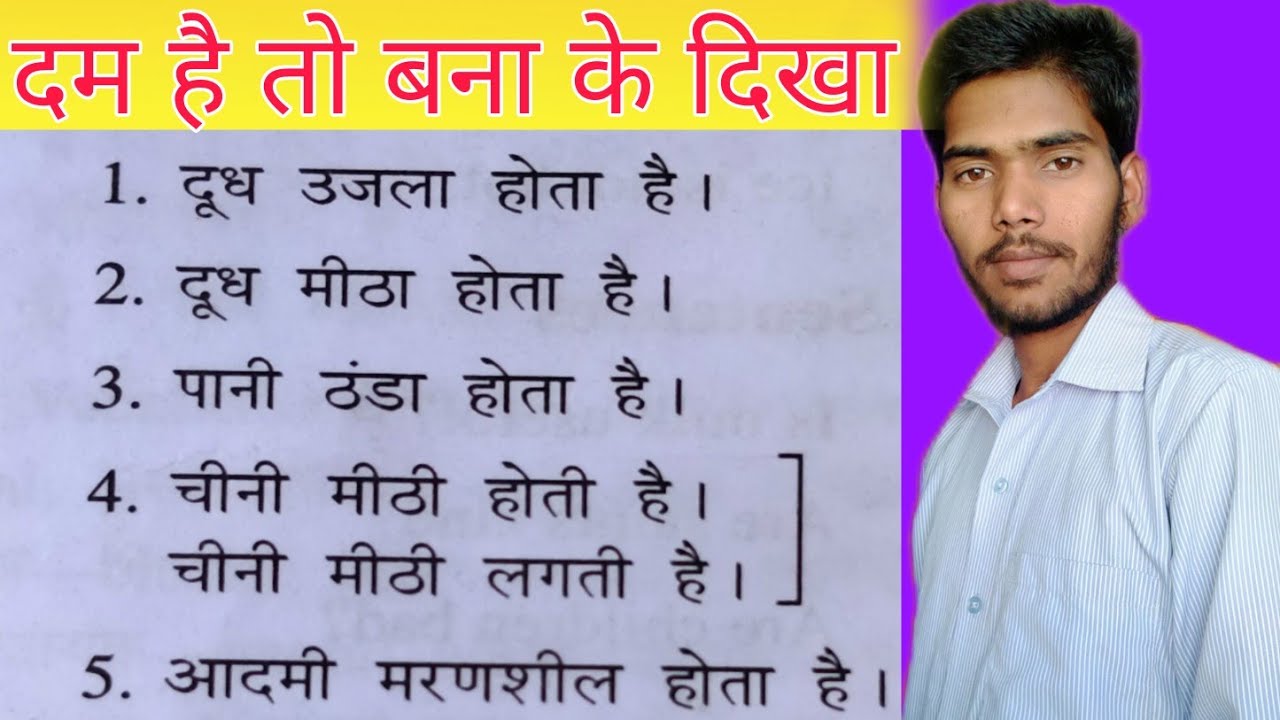 दम है तो बना के दिखा
1. दूध उजला होता है।
2. दूध मीठा होता है।
3. पानी ठंडा होता है।
4. चीनी मीठी होती है।
चीनी मीठी लगती है।
5. आदमी मरणशील होता है।